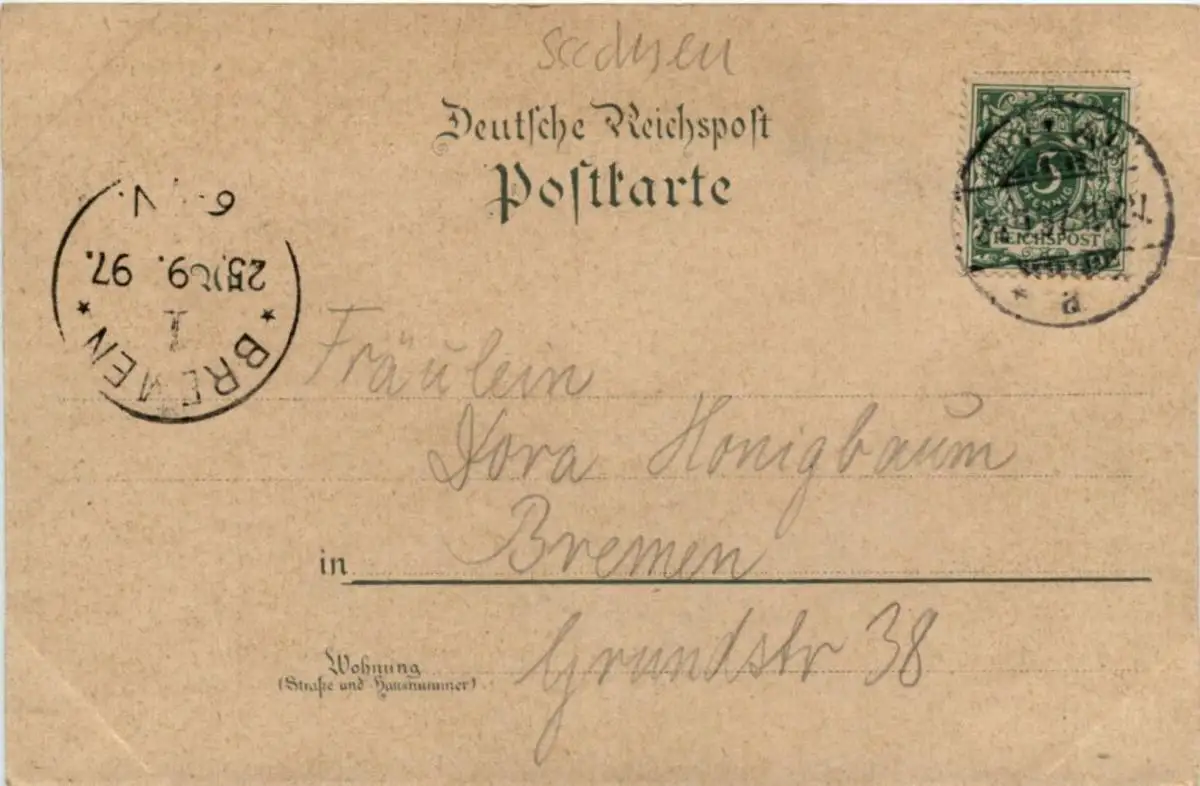 Sachsen
Deutsche Reichspost
Postkarte
5
PFENNIG
REICHSPOST
a
6. V.
25. 9. 97.
1
* BREMEN *
Fräulein
Dora Honigbaum
in Bremen
Wohnung
(Straße und Hausnummer)
Grundstr 38